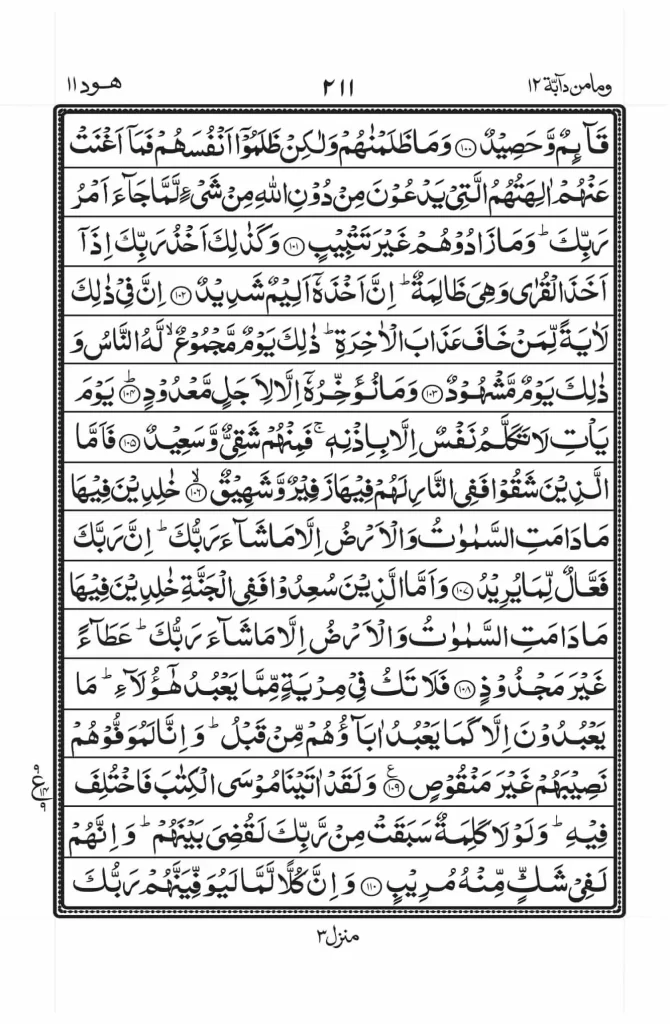 وما من دآبّة ١٢
٢١١
هود ١١
قَآئِمٌ وَّحَصِيْدٌ ۝۱۰۰ وَمَا ظَلَمْنٰهُمْ وَلٰكِنْ ظَلَمُوْٓا اَنْفُسَهُمْ فَمَآ اَغْنَتْ
عَنْهُمْ اٰلِهَتُهُمُ الَّتِيْ يَدْعُوْنَ مِنْ دُوْنِ اللّٰهِ مِنْ شَيْءٍ لَّمَّا جَآءَ اَمْرُ
رَبِّكَ ؕ وَمَا زَادُوْهُمْ غَيْرَ تَتْبِيْبٍ ۝۱۰۱ وَكَذٰلِكَ اَخْذُ رَبِّكَ اِذَآ
اَخَذَ الْقُرٰى وَهِيَ ظَالِمَةٌ ؕ اِنَّ اَخْذَهٗٓ اَلِيْمٌ شَدِيْدٌ ۝۱۰۲ اِنَّ فِيْ ذٰلِكَ
لَاٰيَةً لِّمَنْ خَافَ عَذَابَ الْاٰخِرَةِ ؕ ذٰلِكَ يَوْمٌ مَّجْمُوْعٌ ۙ لَّهُ النَّاسُ وَ
ذٰلِكَ يَوْمٌ مَّشْهُوْدٌ ۝۱۰۳ وَمَا نُؤَخِّرُهٗٓ اِلَّا لِاَجَلٍ مَّعْدُوْدٍ ؕ۝۱۰۴ يَوْمَ
يَاْتِ لَا تَكَلَّمُ نَفْسٌ اِلَّا بِاِذْنِهٖ ۚ فَمِنْهُمْ شَقِيٌّ وَّسَعِيْدٌ ۝۱۰۵ فَاَمَّا
الَّذِيْنَ شَقُوْا فَفِي النَّارِ لَهُمْ فِيْهَا زَفِيْرٌ وَّشَهِيْقٌ ۙ۝۱۰۶ خٰلِدِيْنَ فِيْهَا
مَا دَامَتِ السَّمٰوٰتُ وَالْاَرْضُ اِلَّا مَا شَآءَ رَبُّكَ ؕ اِنَّ رَبَّكَ
فَعَّالٌ لِّمَا يُرِيْدُ ۝۱۰۷ وَاَمَّا الَّذِيْنَ سُعِدُوْا فَفِي الْجَنَّةِ خٰلِدِيْنَ فِيْهَا
مَا دَامَتِ السَّمٰوٰتُ وَالْاَرْضُ اِلَّا مَا شَآءَ رَبُّكَ ؕ عَطَآءً
غَيْرَ مَجْذُوْذٍ ۝۱۰۸ فَلَا تَكُ فِيْ مِرْيَةٍ مِّمَّا يَعْبُدُ هٰٓؤُلَآءِ ؕ مَا
يَعْبُدُوْنَ اِلَّا كَمَا يَعْبُدُ اٰبَآؤُهُمْ مِّنْ قَبْلُ ؕ وَاِنَّا لَمُوَفُّوْهُمْ
نَصِيْبَهُمْ غَيْرَ مَنْقُوْصٍ ۝۱۰۹ ع وَلَقَدْ اٰتَيْنَا مُوْسَى الْكِتٰبَ فَاخْتُلِفَ
فِيْهِ ؕ وَلَوْلَا كَلِمَةٌ سَبَقَتْ مِنْ رَّبِّكَ لَقُضِيَ بَيْنَهُمْ ؕ وَاِنَّهُمْ
لَفِيْ شَكٍّ مِّنْهُ مُرِيْبٍ ۝۱۱۰ وَاِنَّ كُلًّا لَّمَّا لَيُوَفِّيَنَّهُمْ رَبُّكَ
منزل ۳